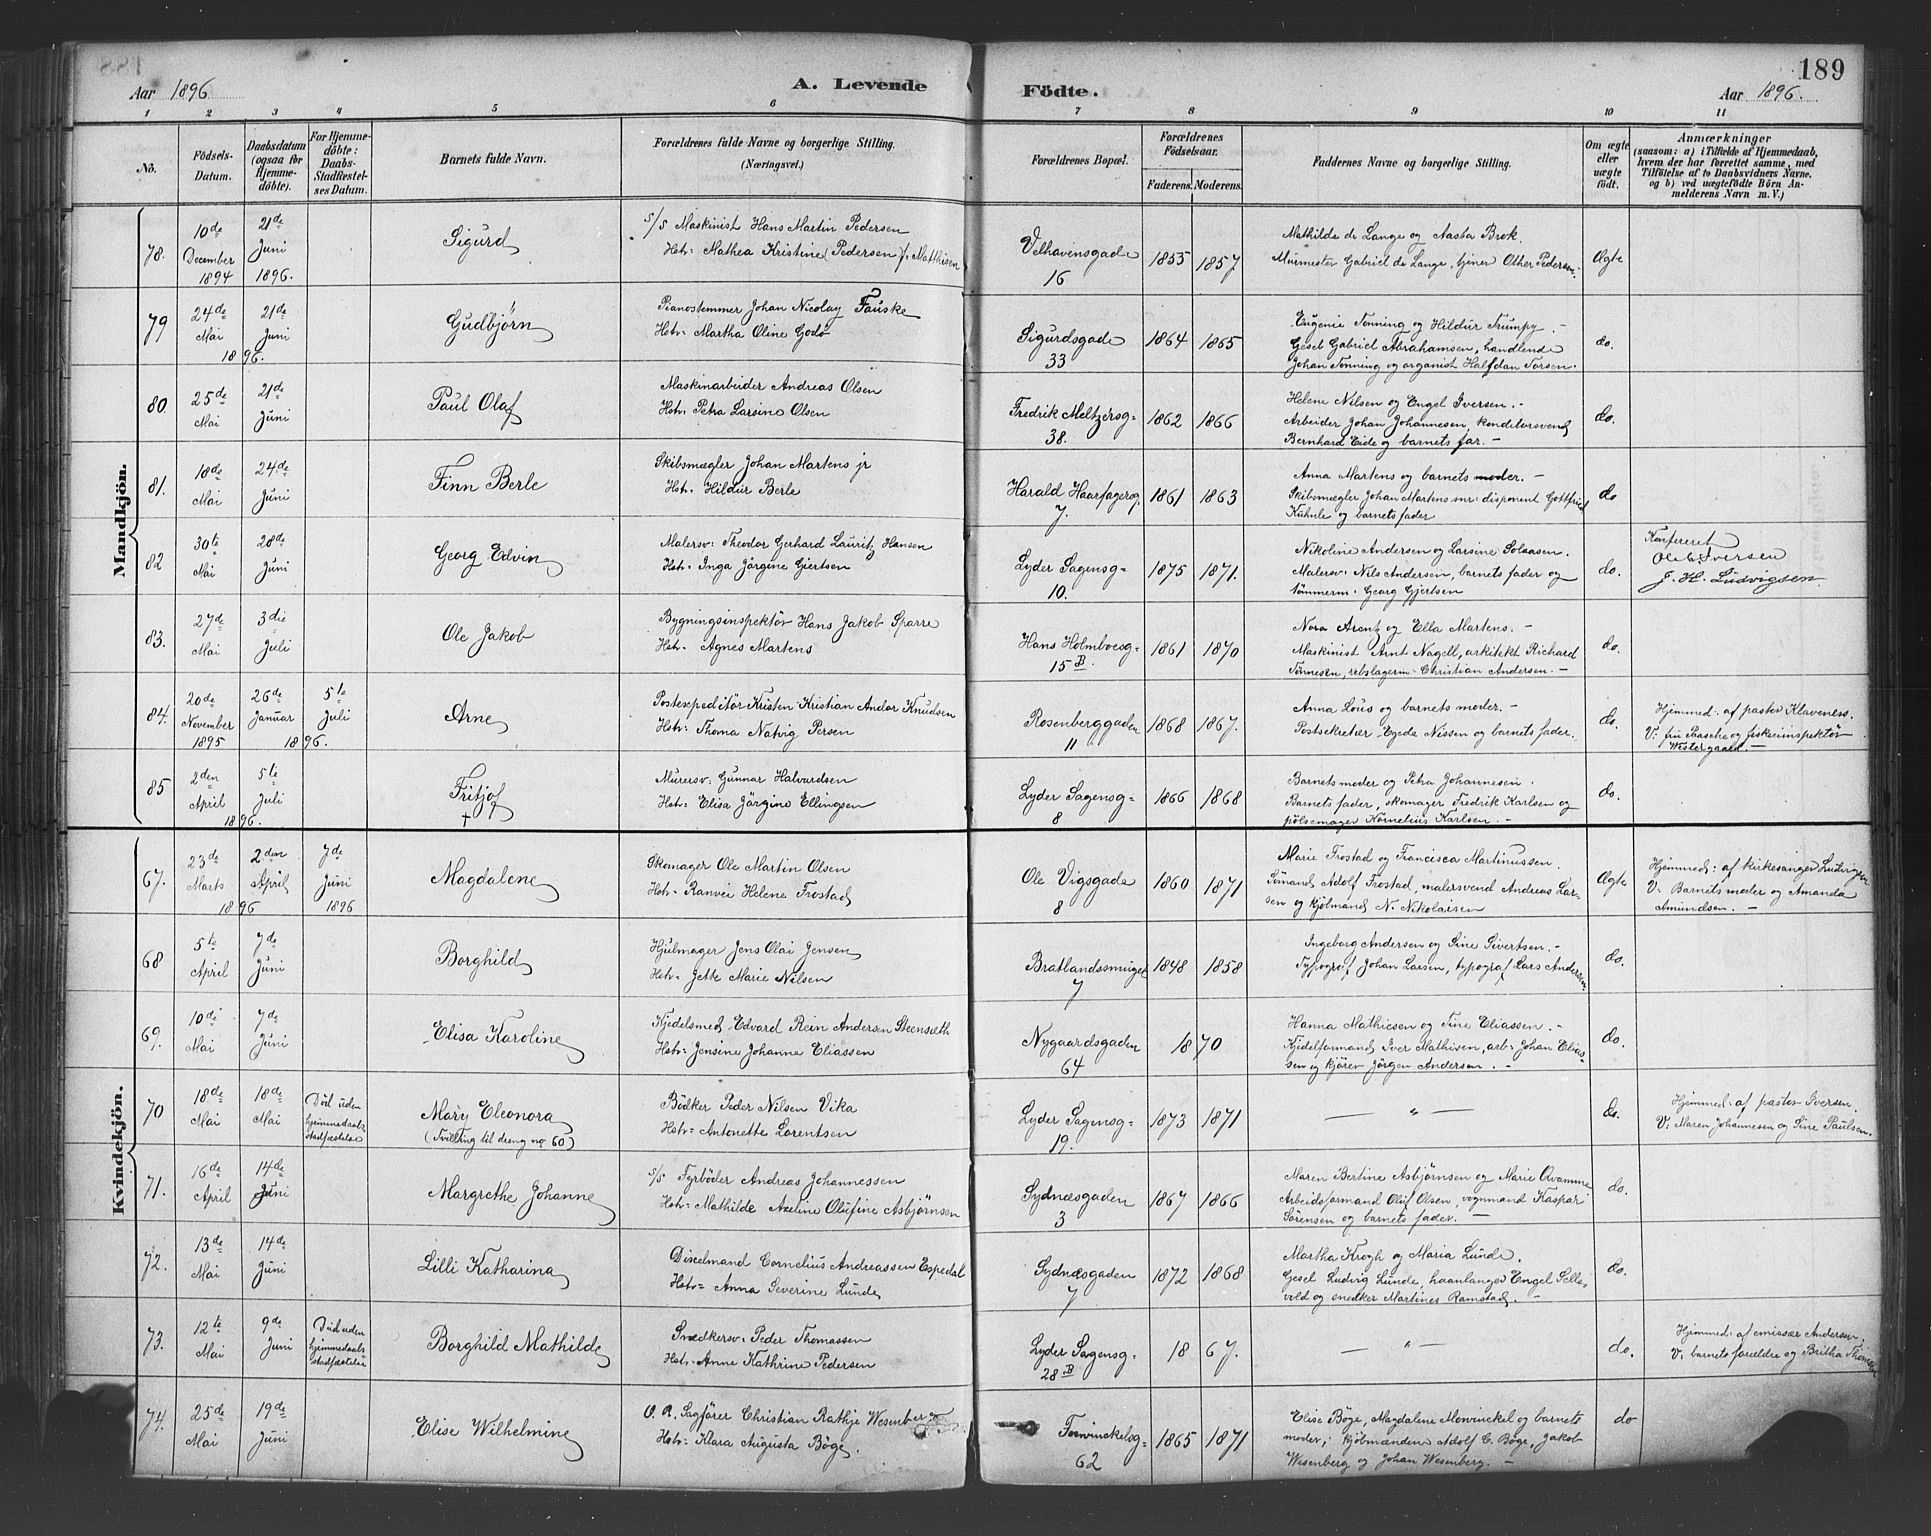 Aar 1896
A. Levende Födte.
189
Aar 1896.
1 2 3 4 5 6 7 8 9 10 11
No.
Födsels-Datum.
Daabsdatum (ogsaa for Hjemme-döbte).
For Hjemme-döbte: Daabs-Stadfæstel-ses Datum.
Barnets fulde Navn.
Forældrenes fulde Navne og borgerlige Stilling.
(Næringsvei.)
Forældrenes Bopæl.
Forældrenes Födselsaar.
Faderens. Moderens.
Faddernes Navne og borgerlige Stilling.
Om ægte eller uægte födt.
Anmærkninger
(saasom: a) i Tilfælde af Hjemmedaab, hvem der har forrettet samme, med Tilföielse af to Daabsvidners Navne, og b) ved uægtefödte Börn An-melderens Navn m. V.)
Mandkjön.
78. 10de December 1894 21de Juni 1896. Sigurd
S/S Maskinist Hans Martin Pedersen
Hstr: Mathea Kristine Pedersen f. Matthisen
Velhavensgade 16 1855 1857
Mathilde de Lange og Aasta Brok.
Murmester Gabriel de Lange, tjener Other Pedersen.
Ægte
79 24de Mai 21de Juni 1896. Gudbjørn
Pianostemmer Johan Nicolay Fauske
Hstr: Martha Oline Godø
Sigurdsgade 33 1864 1865
Eugenie Tonning og Hildur Trumpy.
Gesel Gabriel Abrahamsen, handlende
Johan Tonning og organist Halfdan Torsen.
do.
80. 25de Mai 21de Juni Paul Olaf
Maskinarbeider Andreas Olsen
Hstr: Petra Larsine Olsen
Fredrik Meltzersg= 38. 1862 1866
Helene Nilsen og Engel Iversen.
Arbeider Johan Johannesen, konditorsvend
Bernhard Eide og barnets far.
do.
81. 18de Mai 24de Juni Finn Berle
Skibsmægler Johan Martens jr
Hstr: Hildur Berle
Harald Haarfagersg. 7. 1861 1863
Anna Martens og barnets moder.
Skibsmægler Johan Martens snr: disponent Gottfried
Kühnle og barnets fader
do
82 30te Mai 28de Juni Georg Edvin
Malersv: Theodor Gerhard Lauritz Hansen
Hstr: Inga Jörgine Gjertsen
Lyder Sagensg= 10. 1875 1871.
Nikoline Andersen og Larsine Solaasen.
Malersv: Nils Andersen, barnets fader og
tömmerm: Georg Gjertsen
do.
Konfereret
Ole Iversen
J. H. Ludvigsen
83. 27de Mai 3die Juli Ole Jakob
Bygningsinspektör Hans Jakob Sparre
Hstr: Agnes Martens
Hans Holmboesg= 15B. 1861 1870
Nora Arentz og Ella Martens.
Maskinist Arnt Nagell, arkitekt Richard
Tönnesen, rebslagerm: Christian Andersen.
do.
84. 20de November 1895 26de Januar 5te Juli 1896. Arne
Postexpeditör Kristen Kristian Andor Knudsen
Hstr: Thoma Natvig Persen
Rosenberggaden 11. 1868 1867.
Anna Lous og barnets moder.
Postsekretær Egede Nissen og barnets fader.
do.
Hjemmed: af pastor Klaveness.
V: fru Paasche og fiskeriinspektör
Westergaard
85 2den April 5te Juli 1896. Fritjof †
Murersv: Gunnar Halvardsen
Hstr: Elisa Jörgine Ellingsen
Lyder Sagensg= 8 1866 1868
Barnets moder og Petra Johannesen.
Barnets fader, skomager Fredrik Karlsen og
pölsemager Kornelius Karlsen.
do.
Kvindekjön.
67. 23de Marts 2den April 1896 7de Juni 1896 Magdalene
Skomager Ole Martin Olsen
Hstr: Ranvei Helene Frostad
Ole Vigsgade 8 1860 1871
Marie Frostad og Francisca Martinussen.
Sömand Adolf Frostad, malersvend Andreas Lar-
sen og kjöbmand N. Nikolaisen
Ægte
Hjemmed: af kirkesanger Ludvigsen
V: Barnets moder og Amanda
Amundsen.
68 5te April 7de Juni Borghild
Hjulmager Jens Olai Jensen
Hstr: Jette Marie Nilsen
Bratlandssmuget 7 1848 1858
Ingeborg Andersen og Sine Sivertsen.
Typograf Johan Larsen, typograf Lars Andersen.
do.
69. 10de Mai 7de Juni Elisa Karoline
Kjedelsmed Edvard Rein Andersen Steensæth
Hstr: Jensine Johanne Eliassen
Nygaardsgaden 64 1870
Hanna Mathiesen og Tine Eliassen.
Kjedelformand Iver Mathisen, arb: Johan Elias-
sen og kjörer Jörgen Andersen.
do.
70 18de Mai 18de Mai Död uden hjemmedaabs stadfæstelse Mary Eleonora
(Tvilling til dreng no 60)
Bödker Peder Nilsen Vika
Hstr: Antonette Lorentsen
Lyder Sagensg= 19. 1873 1871
— " —
do.
Hjemmed: af pastor Iversen.
V: Maren Johannesen og Sine Paulsen.
71. 16de April 14de Juni Margrethe Johanne
S/S Fyrböder Andreas Johannessen
Hstr: Mathilde Axeline Olufine Asbjörnsen
Sydnæsgaden 3 1867 1866
Maren Bertine Asbjörnsen og Marie Qvamme
Arbeidsformand Oluf Olsen, vognmand Kaspar
Sörensen og barnets fader.
do.
72. 13de Mai 14de Juni Lilli Katharina
Dixelmand Cornelius Andreassen Espedal
Hstr: Anna Severine Lunde
Sydnæsgaden 7 1872 1868
Martha Krogh og Maria Lunde.
Gesel Ludvig Lunde, haanlanger Engel Selle-
vold og snedker Martines Ramstad.
do.
73. 12te Mai 9de Juni Död uden hjemmedaabs stadfæstelse Borghild Mathilde
Snedkersv: Peder Thomassen
Hstr: Anne Kathrine Pedersen
Lyder Sagensg= 28B 1867.
— " —
do.
Hjemmed: af emissær Andersen.
V: barnets forældre og Britha Thomsen
74. 25de Mai 19de Juni Elise Wilhelmine
O. R. Sagförer Christian Rathje Wesenberg
Hstr: Klara Augusta Böge.
62 1865 1871
Elise Böge, Magdalene Mowinckel og barnets
moder; kjöbmændene Adolf C. Böge, Jakob
Wesenberg og Johan Wesenberg.
do